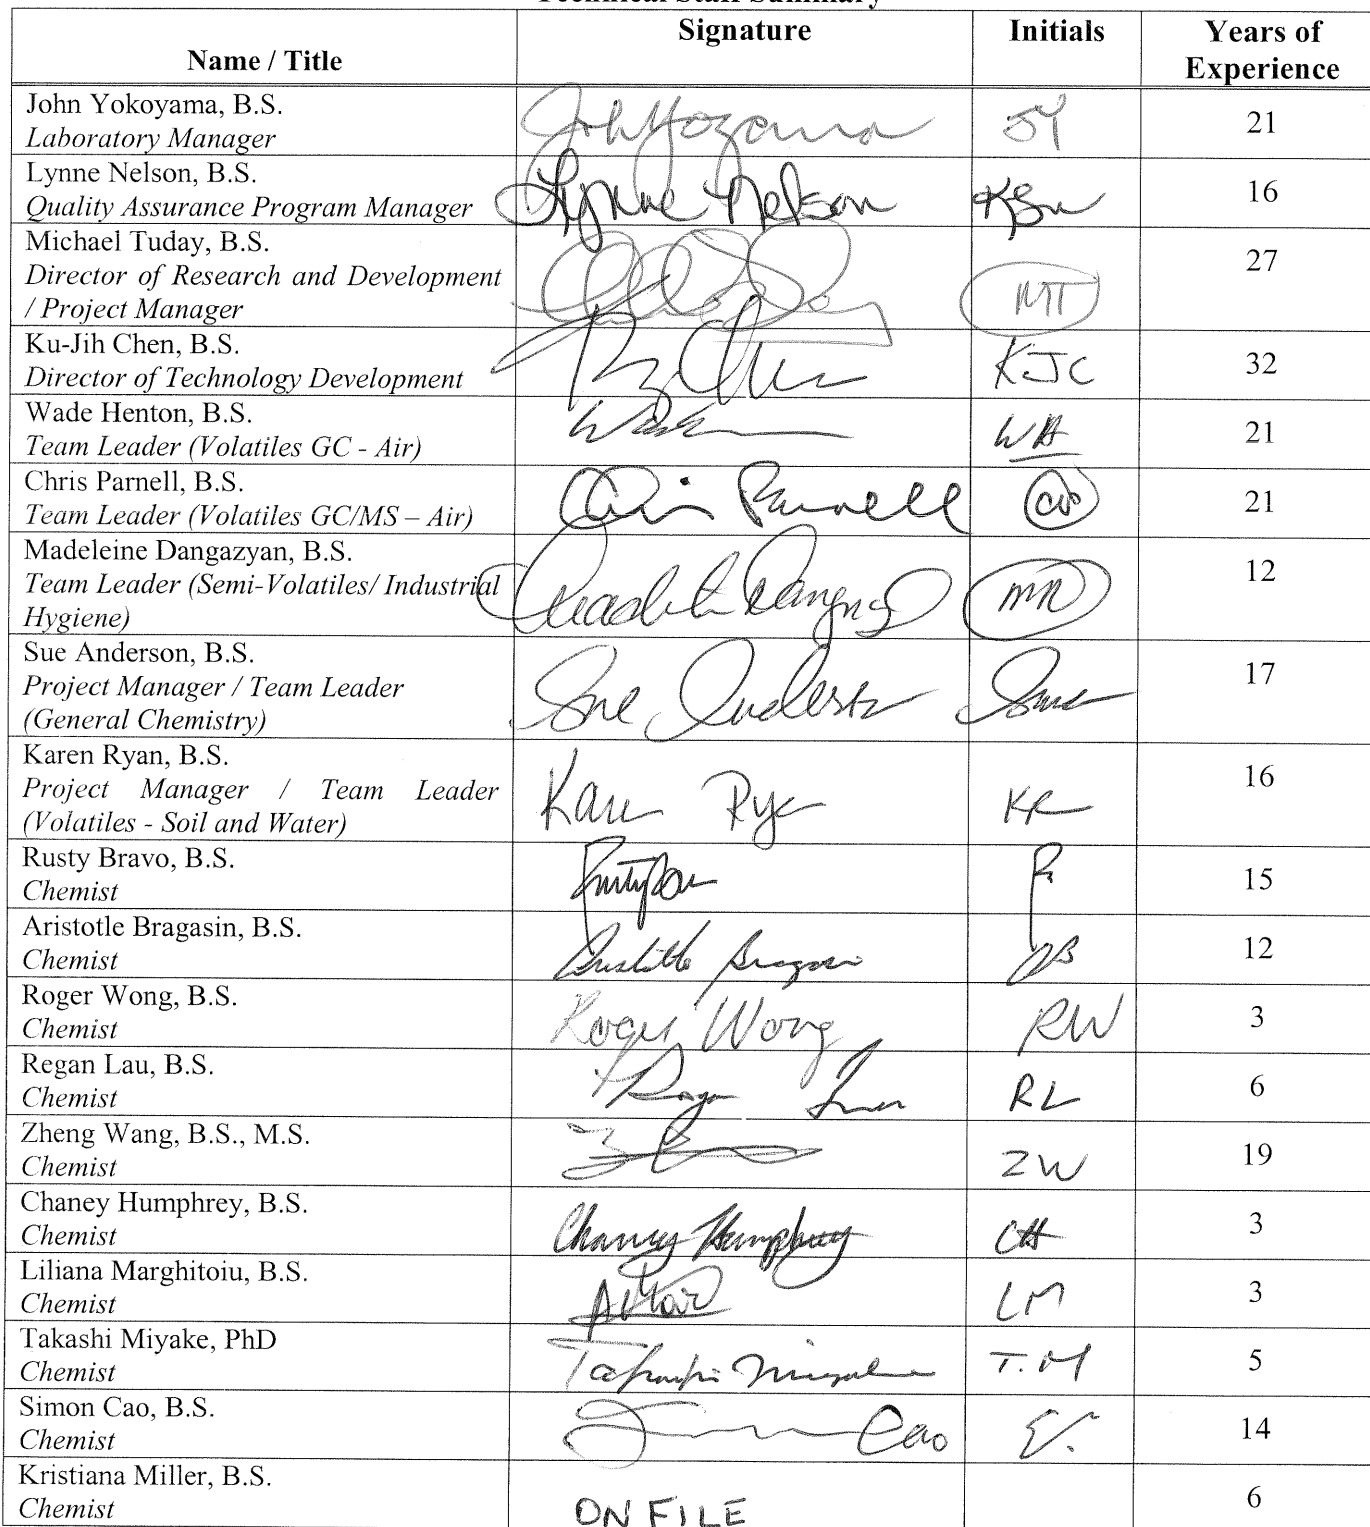 Technical Staff Summary
Name / Title Signature Initials Years of Experience
John Yokoyama, B.S.
Laboratory Manager
JY
21
Lynne Nelson, B.S.
Quality Assurance Program Manager
Lynne Nelson
16
Michael Tuday, B.S.
Director of Research and Development
/ Project Manager
MT
27
Ku-Jih Chen, B.S.
Director of Technology Development
KJC
32
Wade Henton, B.S.
Team Leader (Volatiles GC - Air)
WH
21
Chris Parnell, B.S.
Team Leader (Volatiles GC/MS – Air)
Chris Parnell
21
Madeleine Dangazyan, B.S.
Team Leader (Semi-Volatiles/ Industrial
Hygiene)
12
Sue Anderson, B.S.
Project Manager / Team Leader
(General Chemistry)
Sue Anderson
17
Karen Ryan, B.S.
Project Manager / Team Leader
(Volatiles - Soil and Water)
Karen Ryan
KR
16
Rusty Bravo, B.S.
Chemist
15
Aristotle Bragasin, B.S.
Chemist
AB
12
Roger Wong, B.S.
Chemist
Roger Wong
RW
3
Regan Lau, B.S.
Chemist
RL
6
Zheng Wang, B.S., M.S.
Chemist
ZW
19
Chaney Humphrey, B.S.
Chemist
Chaney Humphrey
CH
3
Liliana Marghitoiu, B.S.
Chemist
LM
3
Takashi Miyake, PhD
Chemist
Takashi Miyake
T.M
5
Simon Cao, B.S.
Chemist
Cao
14
Kristiana Miller, B.S.
Chemist
ON FILE
6